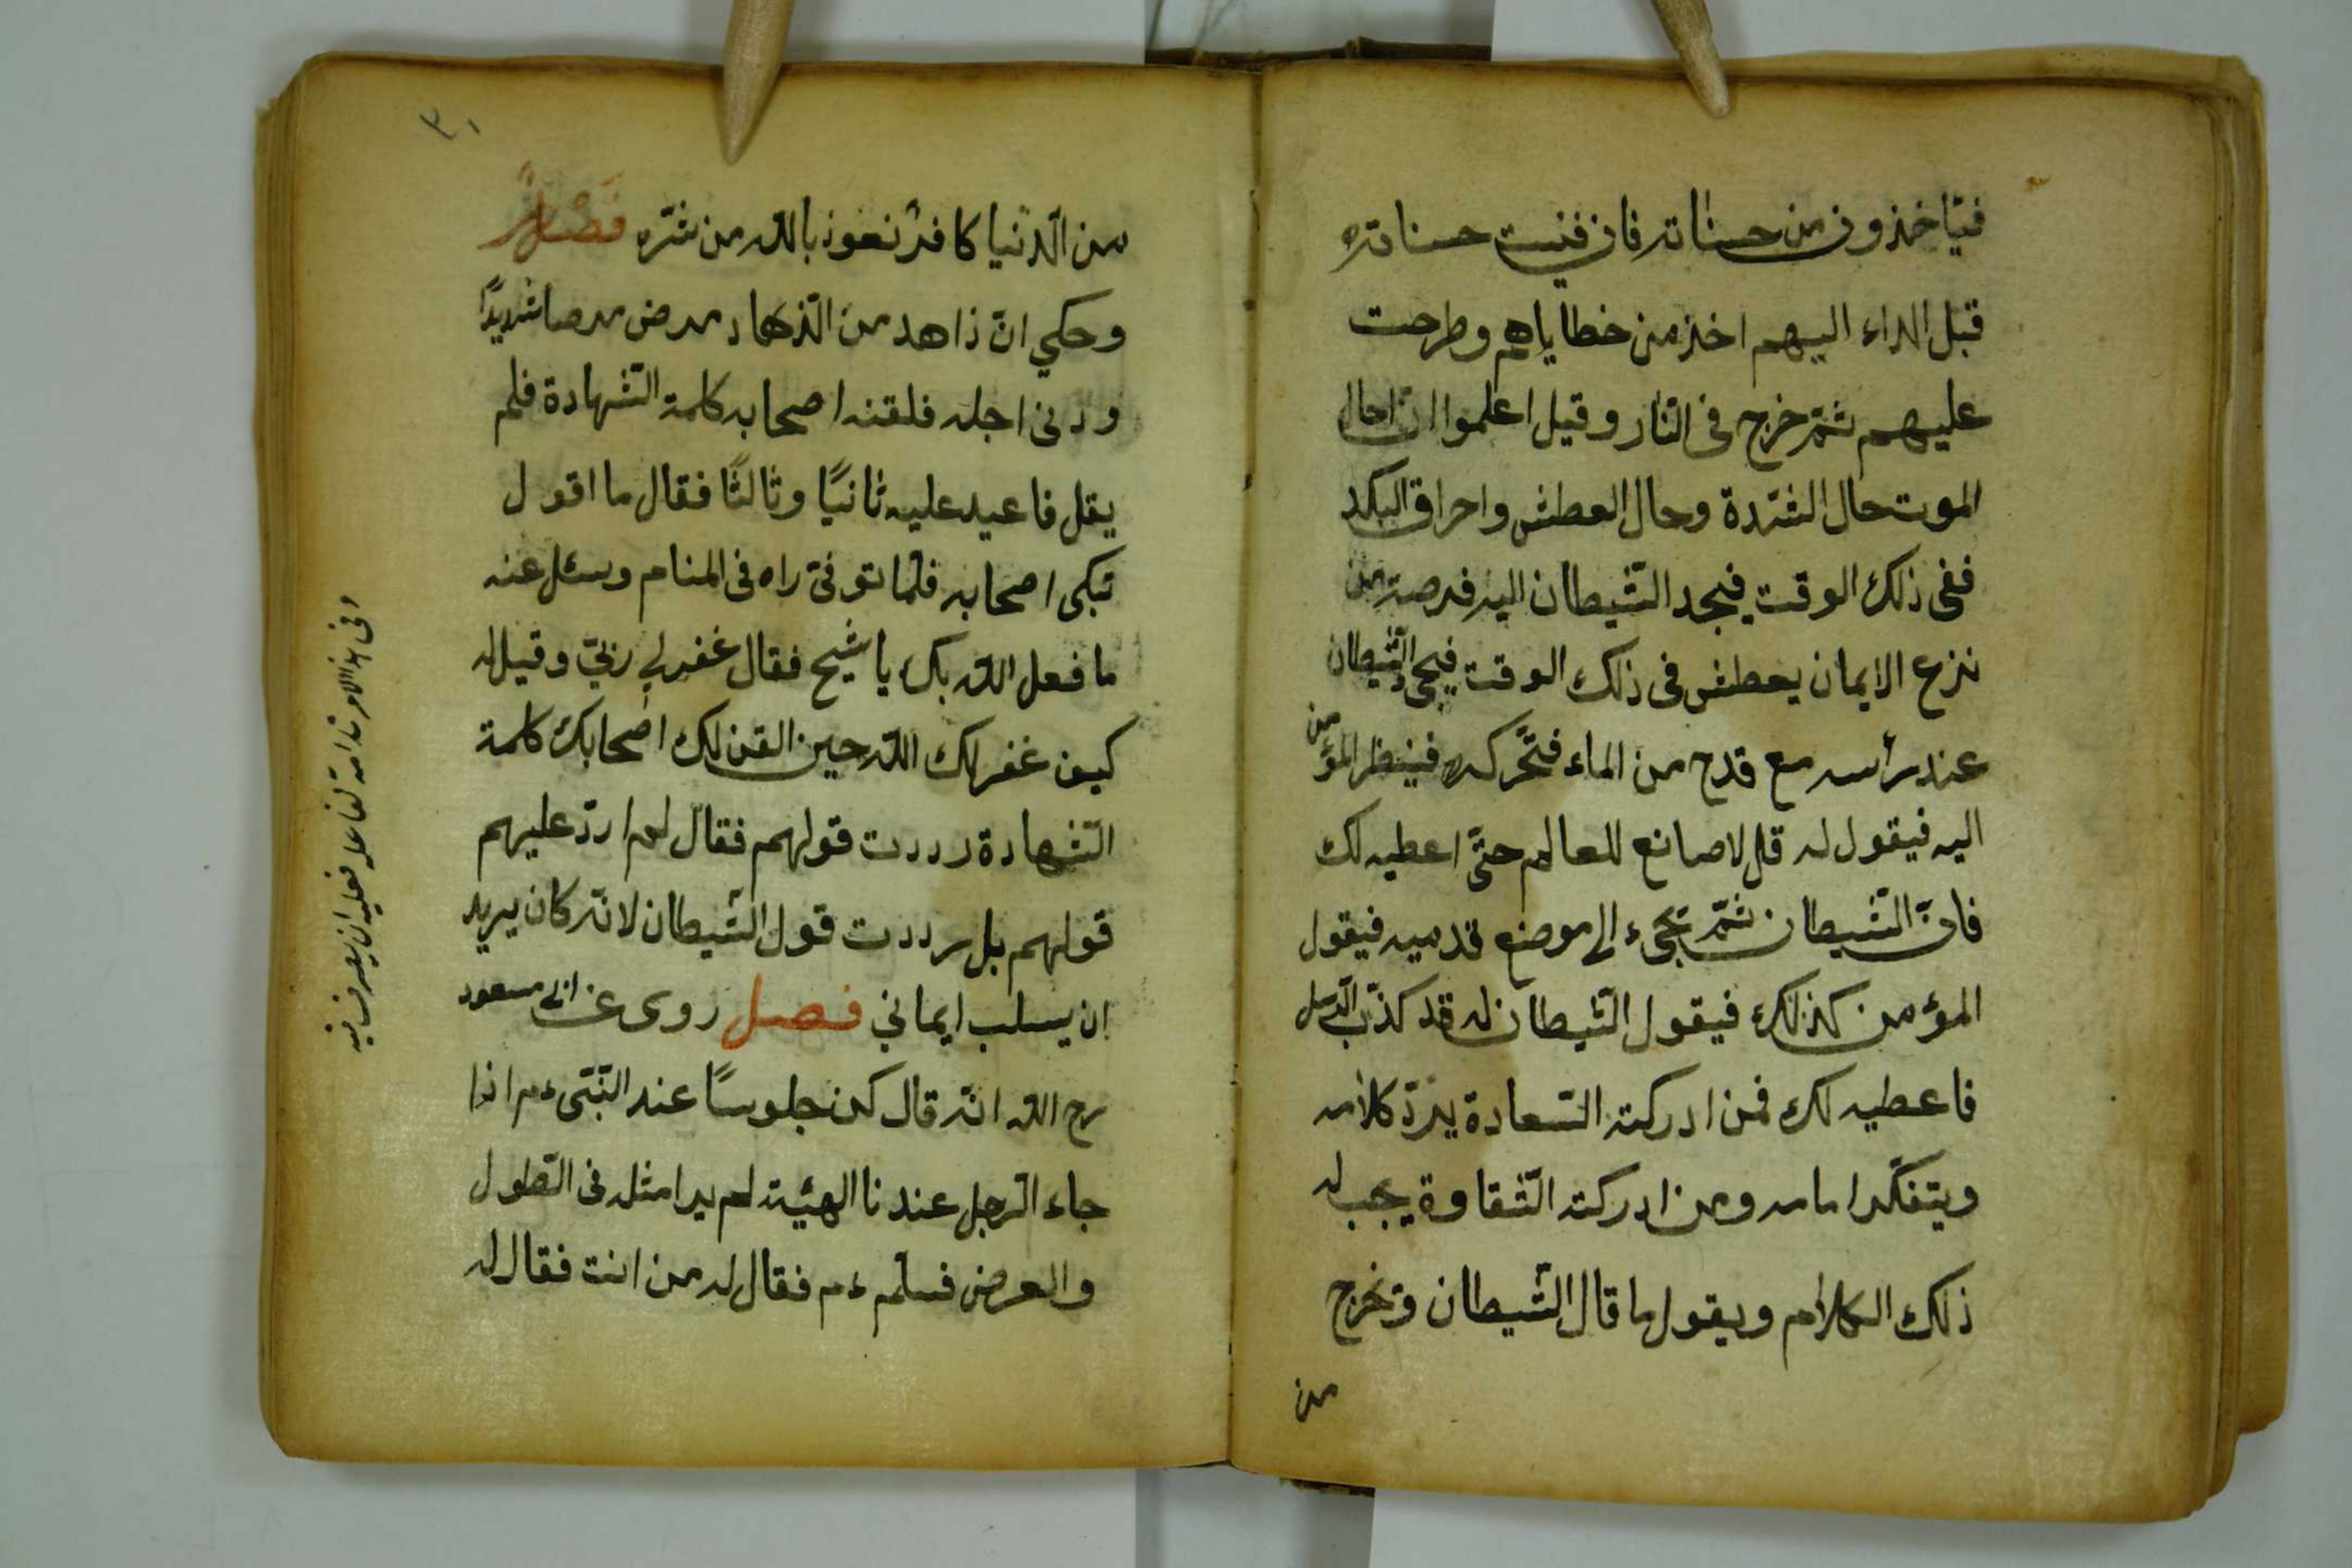 فيأخذون من حسناته فان فنيت حسناته
قبل الداء اليهم اخذ من خطاياهم وطرحت
عليهم ثمّ خرج فى النّار وقيل اعلموا انّ حال
الموت حال الشّدة وحال العطش واحراق الكبد
ففى ذلك الوقت فيجد الشّيطان اليه فرصة من
نزع الايمان يعطش فى ذلك الوقت فيجئ الشّيطان
عند رأسه مع قدح من الماء فتحّركه فينظر المؤمن
اليه فيقول له قل لا صانع للعالم حتّى اعطيه لك
فانّ الشّيطان ثمّ يجىء الى موضع قدميه فيقول
المؤمن كذلك فيقول الشّيطان له قد كذّب الرّسل
فاعطيه لك فمن ادركته السّعادة يردّ كلامه
ويتفكّر امامه ومن ادركته الشّقاوة يجب له
ذلك الكلام ويقول ما قال الشّيطان وتخرج
من
٣١
من الدّنيا كافرٌ نعوذ بالله من شرّه فَصْلٌ
وحكي انّ زاهد من الذهاد مرض مرصا شديدًا
ودنى اجله فلقنه اصحابه كلمة الشّهادة فلم
يقل فاعيد عليه ثانيًا وثالثًا فقال ما اقول
تبكى اصحابه فلمّا توفىّ راه فى المنام وسئل عنه
ما فعل الله بك يا شيخ فقال غفر لي ربّي وقيل له
كيف غفر لك الله حين القن لك اصحابك كلمة
الشّهادة رددت قولهم فقال لم اردّ عليهم
قولهم بل رددت قول الشّيطان لانّه كان يريد
ان يسلب ايماني فصل روى عن ابى مسعود
رح الله انّه قال كن جلوسًا عند النّبىّ ءم اذا
جاء الرّجل عندنا الهيئة لم يرا مثله فى الطّول
والعرض فسلّم ءم فقال له من انت فقال له